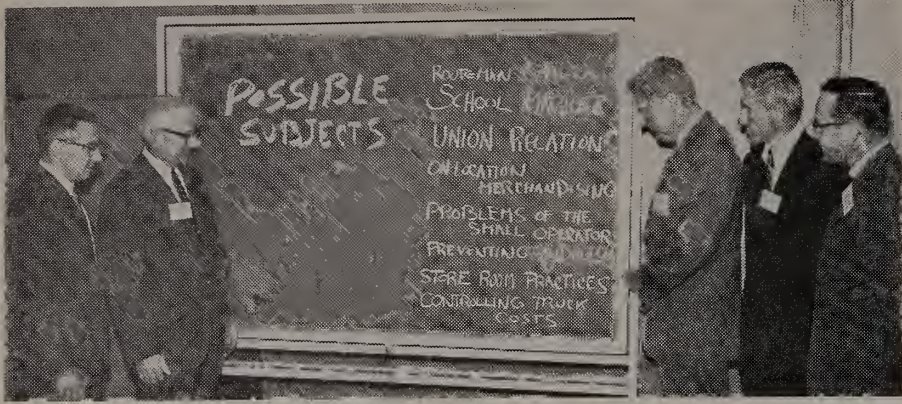 POSSIBLE
SUBJECTS
ROUTEMAN
SCHOOL
UNION RELATIONS
ON LOCATION
MERCHANDISING
PROBLEMS OF THE
SMALL OPERATOR
PREVENTING
STORE ROOM PRACTICES
CONTROLLING TRUCK
COSTS